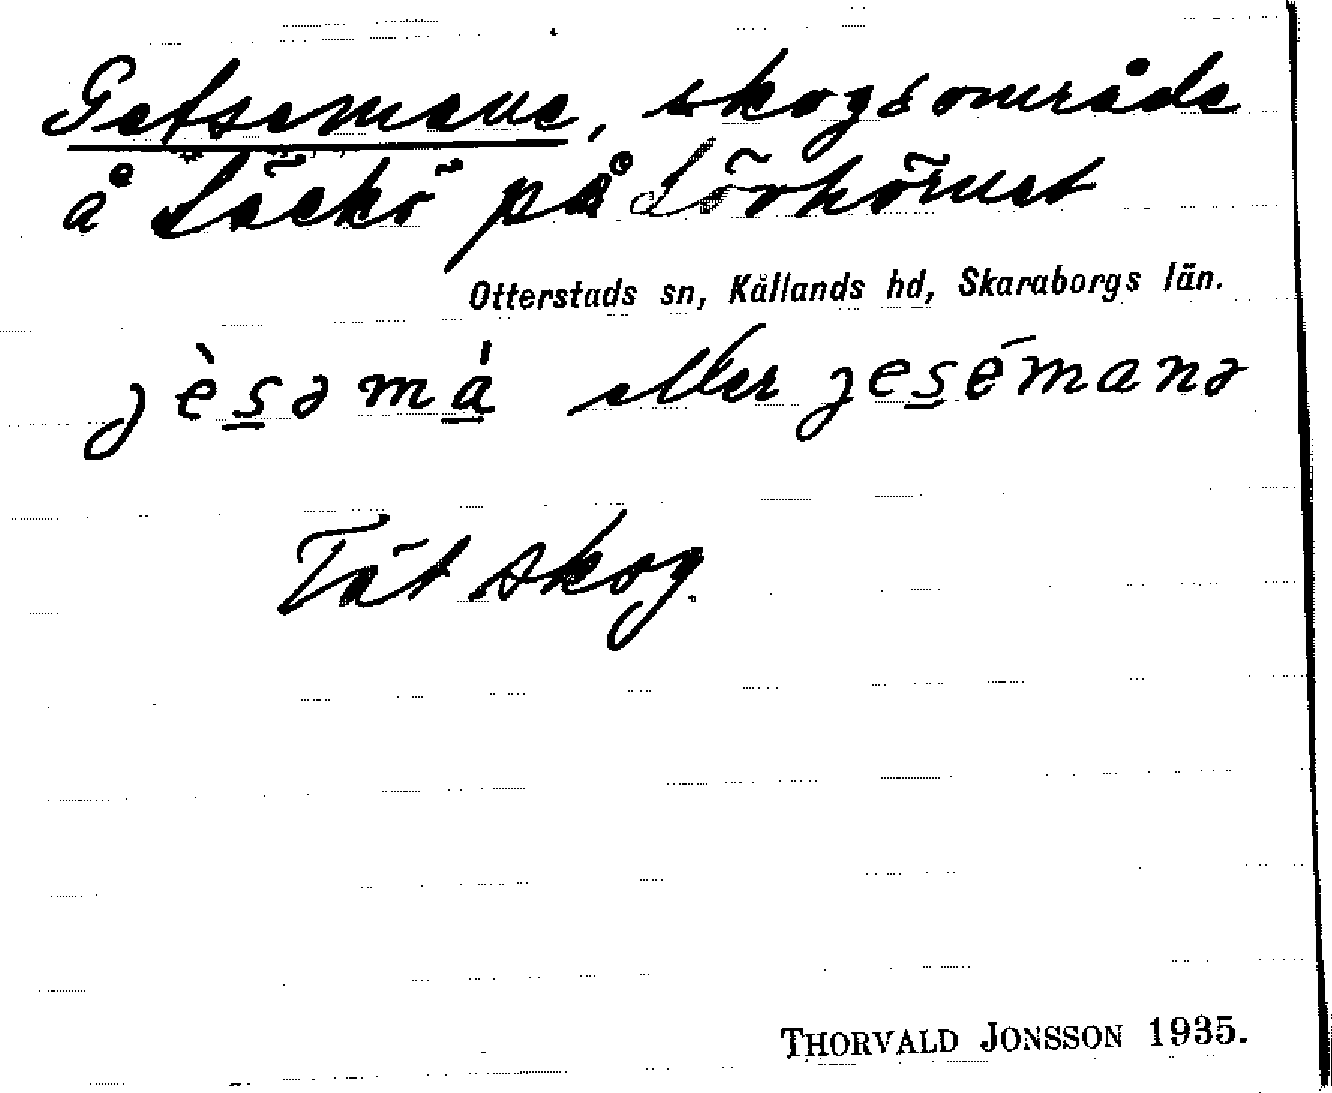 Getsemane, skogsområde
å Läckö på Sörhörnet
Otterstads sn, Kållands hd, Skaraborgs län.
jèsǝmá eller jesémanǝ
Tät skog.
THORVALD JONSSON 1935.